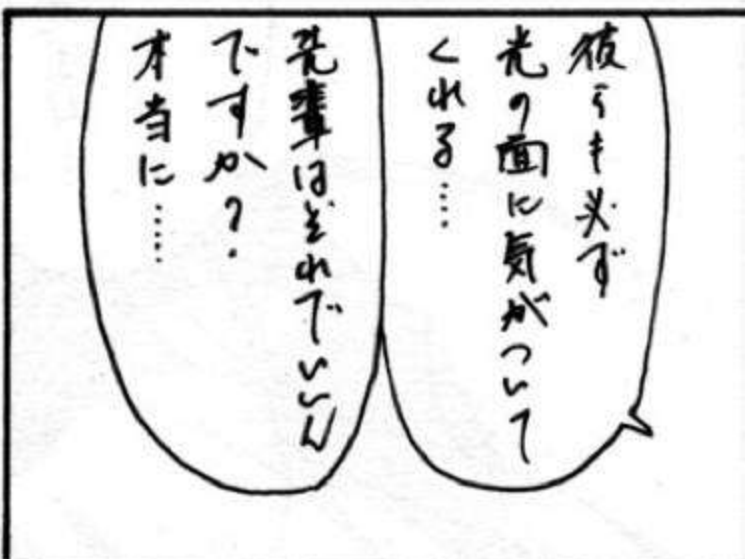 彼らも必ず
光の面に気がついて
くれる……
先輩はそれでいいん
ですか？
本当に……